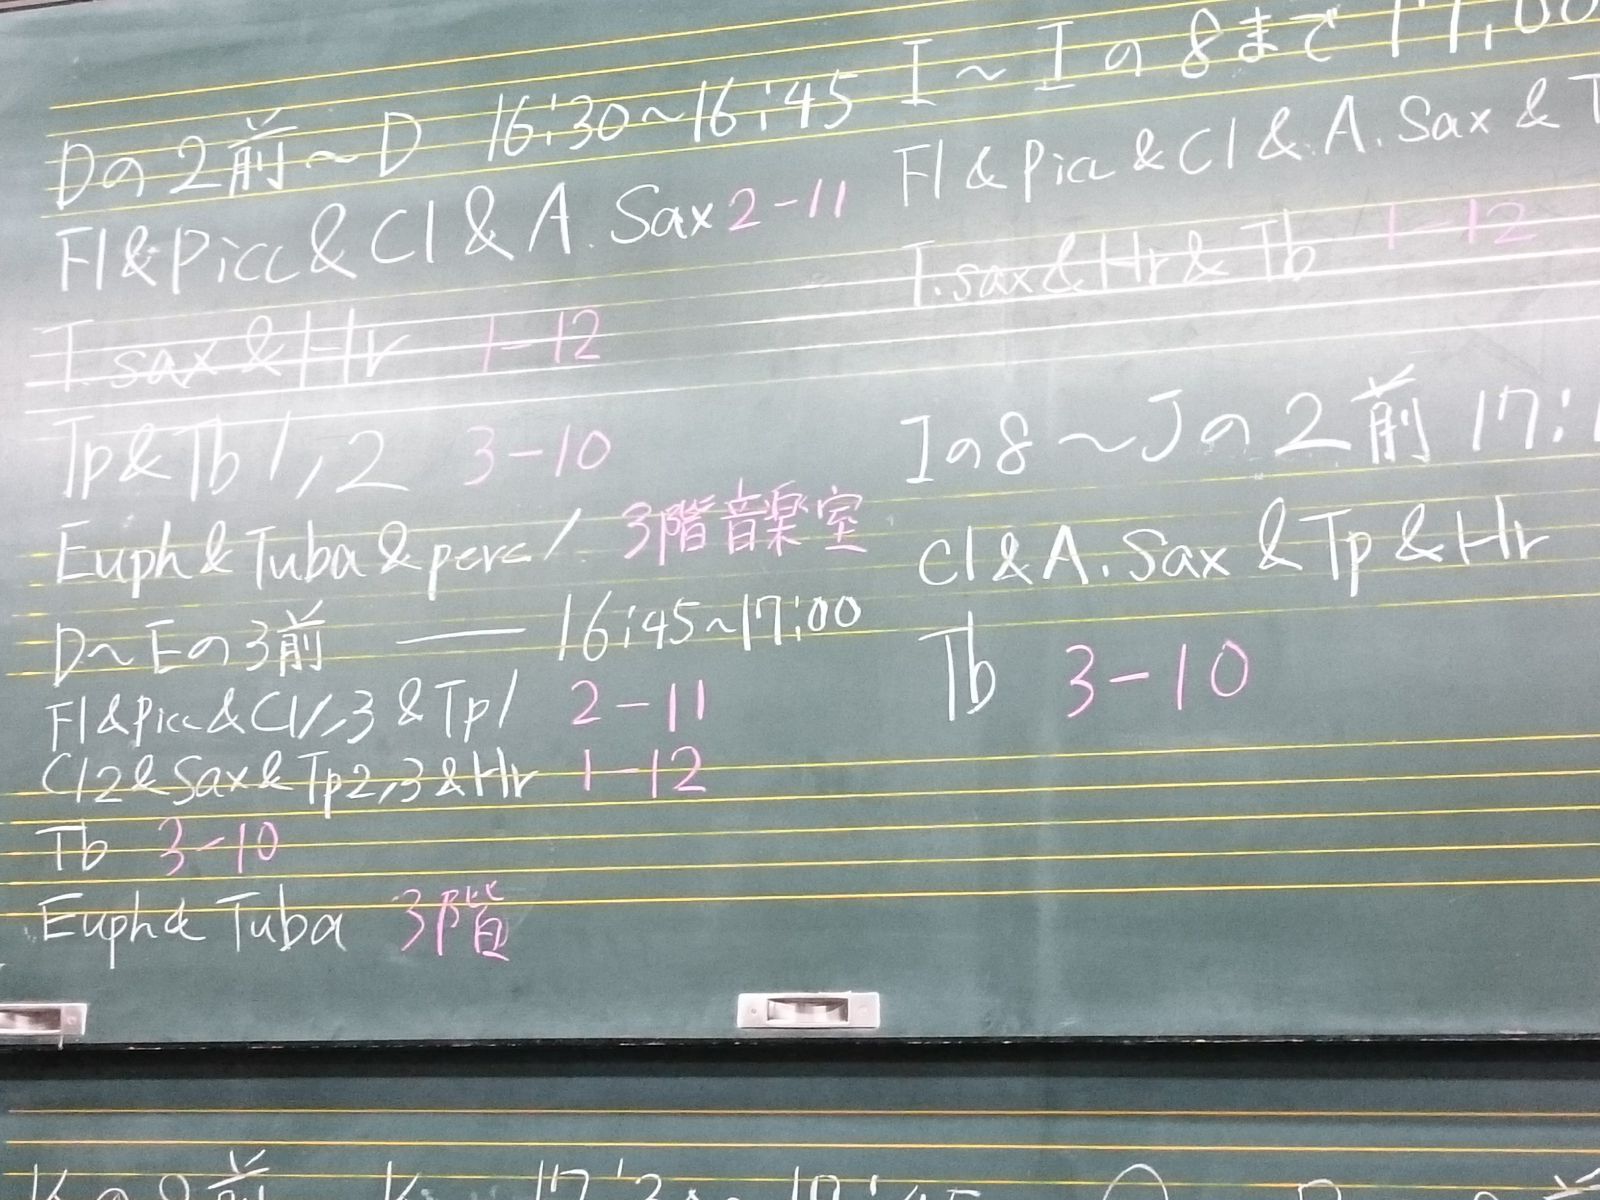 Dの2前～D 16:30～16:45
Fl&Picc&Cl&A.Sax 2-11
T.sax&Hr 1-12
Tp&Tb1,2 3-10
Euph&Tuba&perc1. 3階音楽室
D～Eの3前 —— 16:45～17:00
Fl&Picc&Cl1,3&Tp1 2-11
Cl2&Sax&Tp2,3&Hr 1-12
Tb 3-10
Euph& Tuba 3階
I～Iの8まで 17:00
Fl&Picc&Cl&A.Sax&
T.sax&Hr&Tb 1-12
Iの8～Jの2前 17:
Cl&A.Sax&Tp&Hr
Tb 3-10